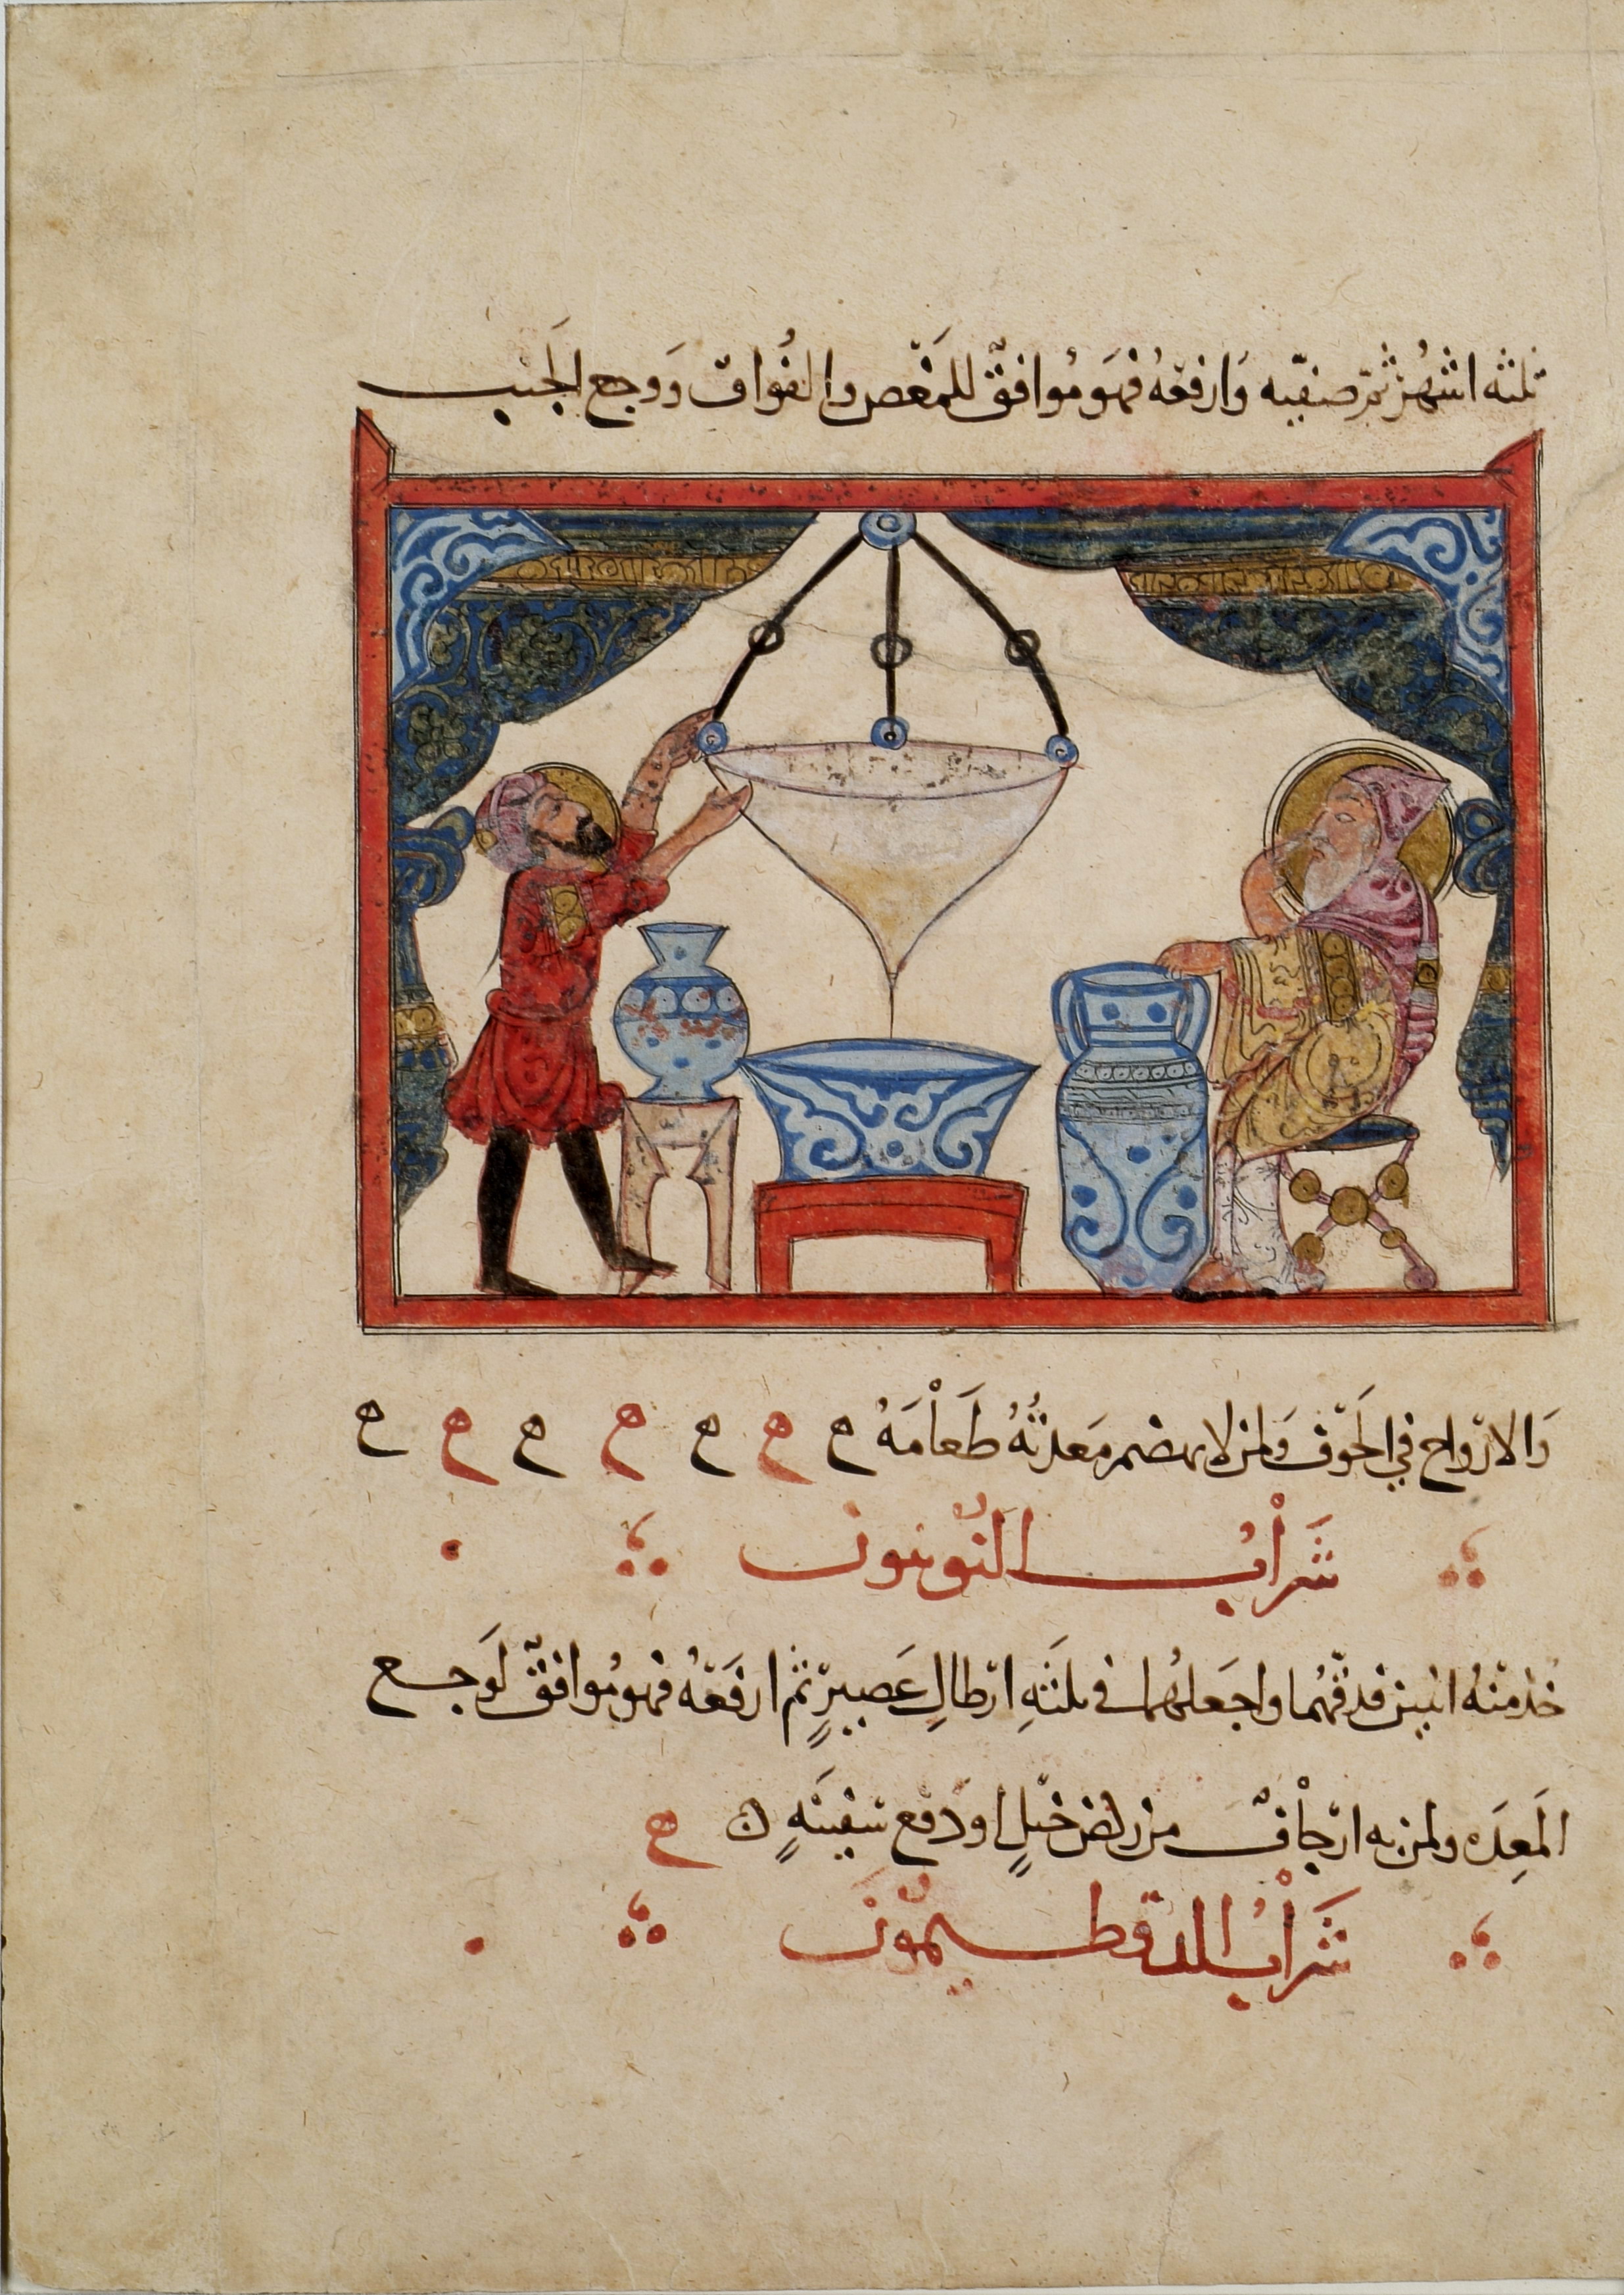 ثلثه اشهر ثم صفيه وارفعه فهو موافق للمغص والفواق ووجع الجنب
والارواح في الجوف ولمن لا يهضم معدته طعامه ح ح ح ح ح ح ح
شراب النوبنون
خذ منه اثنين فدقهما واجعلهما في ثلثه ارطال عصير ثم ارفعه فهو موافق لوجع
المعده ولمن به ارتجاف من ركض خيل او دفع سفينه ن ح
شراب الدقطيمون